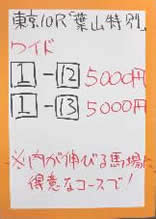 東京10R「葉山特別」
ワイド
1-12 5000円
1-13 5000円
※内が伸びる馬場に
得意なコースで!